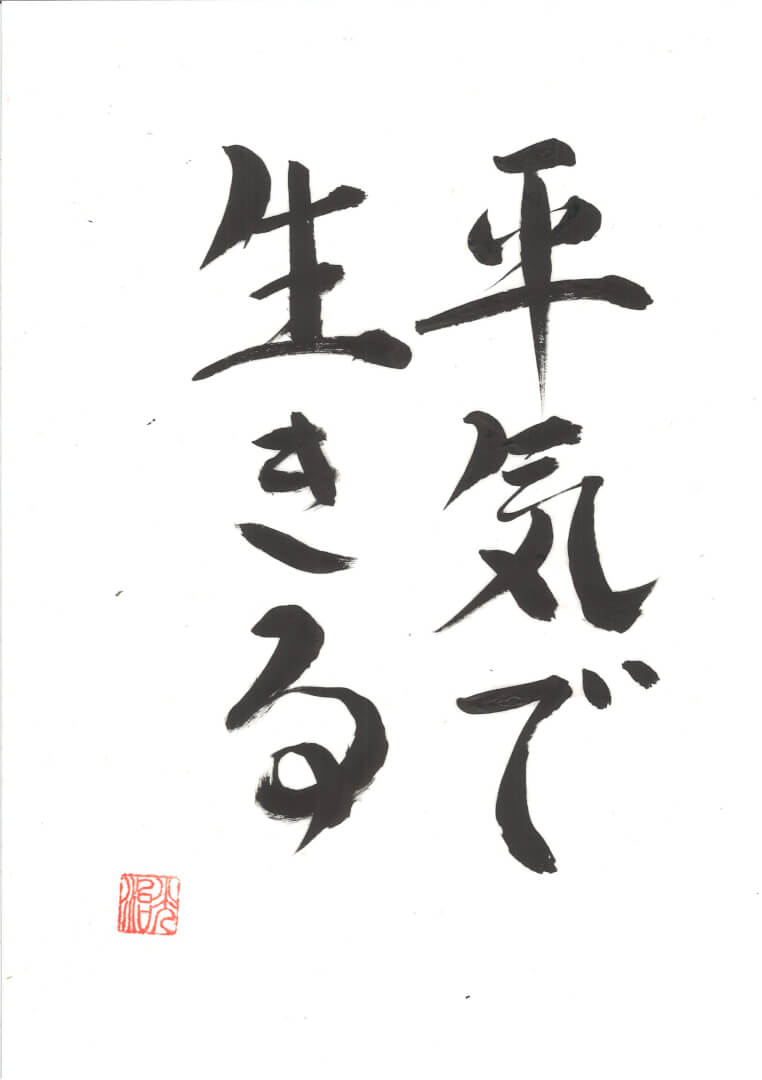 平気で
生きる